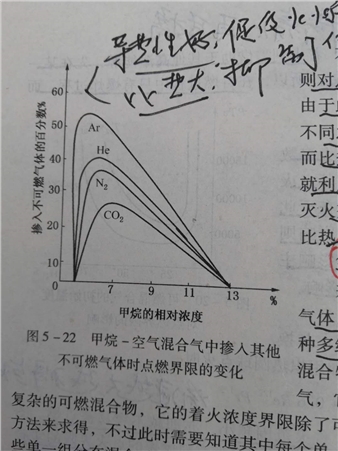 导热性好，促使
比热大，抑制
则对
由于
不同
而比
就利
灭火
比热
60
50
40
30
20
10
0
掺入不可燃气体的百分数%
Ar
He
N₂
CO₂
7 9 11 13 %
甲烷的相对浓度
图5-22 甲烷-空气混合气中掺入其他
不可燃气体时点燃界限的变化
气体
种多
混合
气，
复杂的可燃混合物，它的着火浓度界限除了可
方法来求得，不过此时需要知道其中每个单
些单一组分在混合